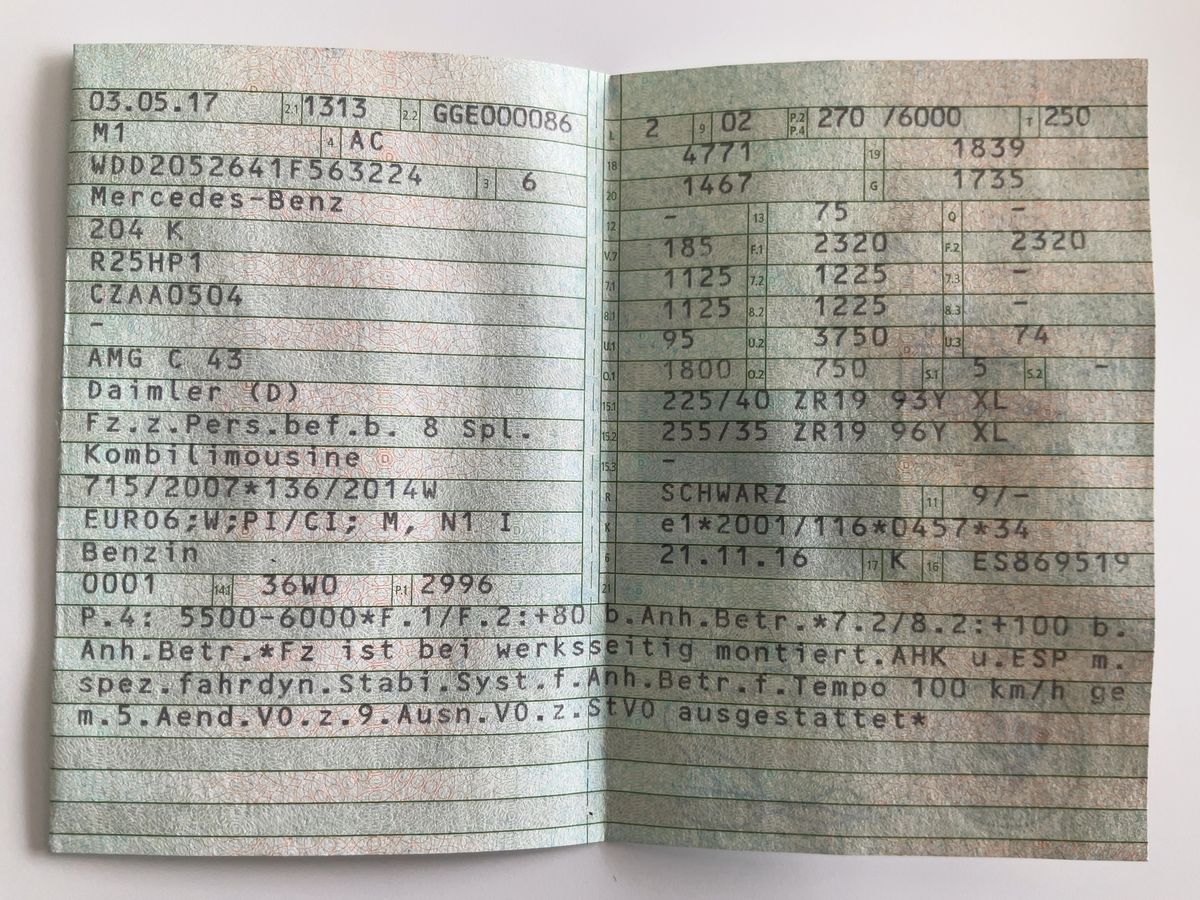 03.05.17 2.1 1313 2.2 GGE000086
M1 4 AC
WDD2052641F563224 3 6
Mercedes-Benz
204 K
R25HP1
CZAA0504
-
AMG C 43
Daimler (D)
Fz.z.Pers.bef.b. 8 Spl.
Kombilimousine
715/2007*136/2014W
EURO6;W;PI/CI; M, N1 I
Benzin
0001 14.1 36W0 P.1 2996
L 2 9 02 P.2 P.4 270 /6000 T 250
18 4771 19 1839
20 1467 G 1735
12 - 13 75 Q -
V.7 185 F.1 2320 F.2 2320
7.1 1125 7.2 1225 7.3 -
8.1 1125 8.2 1225 8.3 -
U.1 95 U.2 3750 U.3 74
O.1 1800 O.2 750 S.1 5 S.2 -
15.1 225/40 ZR19 93Y XL
15.2 255/35 ZR19 96Y XL
15.3 -
R SCHWARZ 11 9/-
K e1*2001/116*0457*34
6 21.11.16 17 K 16 ES869519
21
P.4: 5500-6000*F.1/F.2:+80 b.Anh.Betr.*7.2/8.2:+100 b.
Anh.Betr.*Fz ist bei werksseitig montiert.AHK u.ESP m.
spez.fahrdyn.Stabi.Syst.f.Anh.Betr.f.Tempo 100 km/h ge
m.5.Aend.VO.z.9.Ausn.VO.z.StVO ausgestattet*